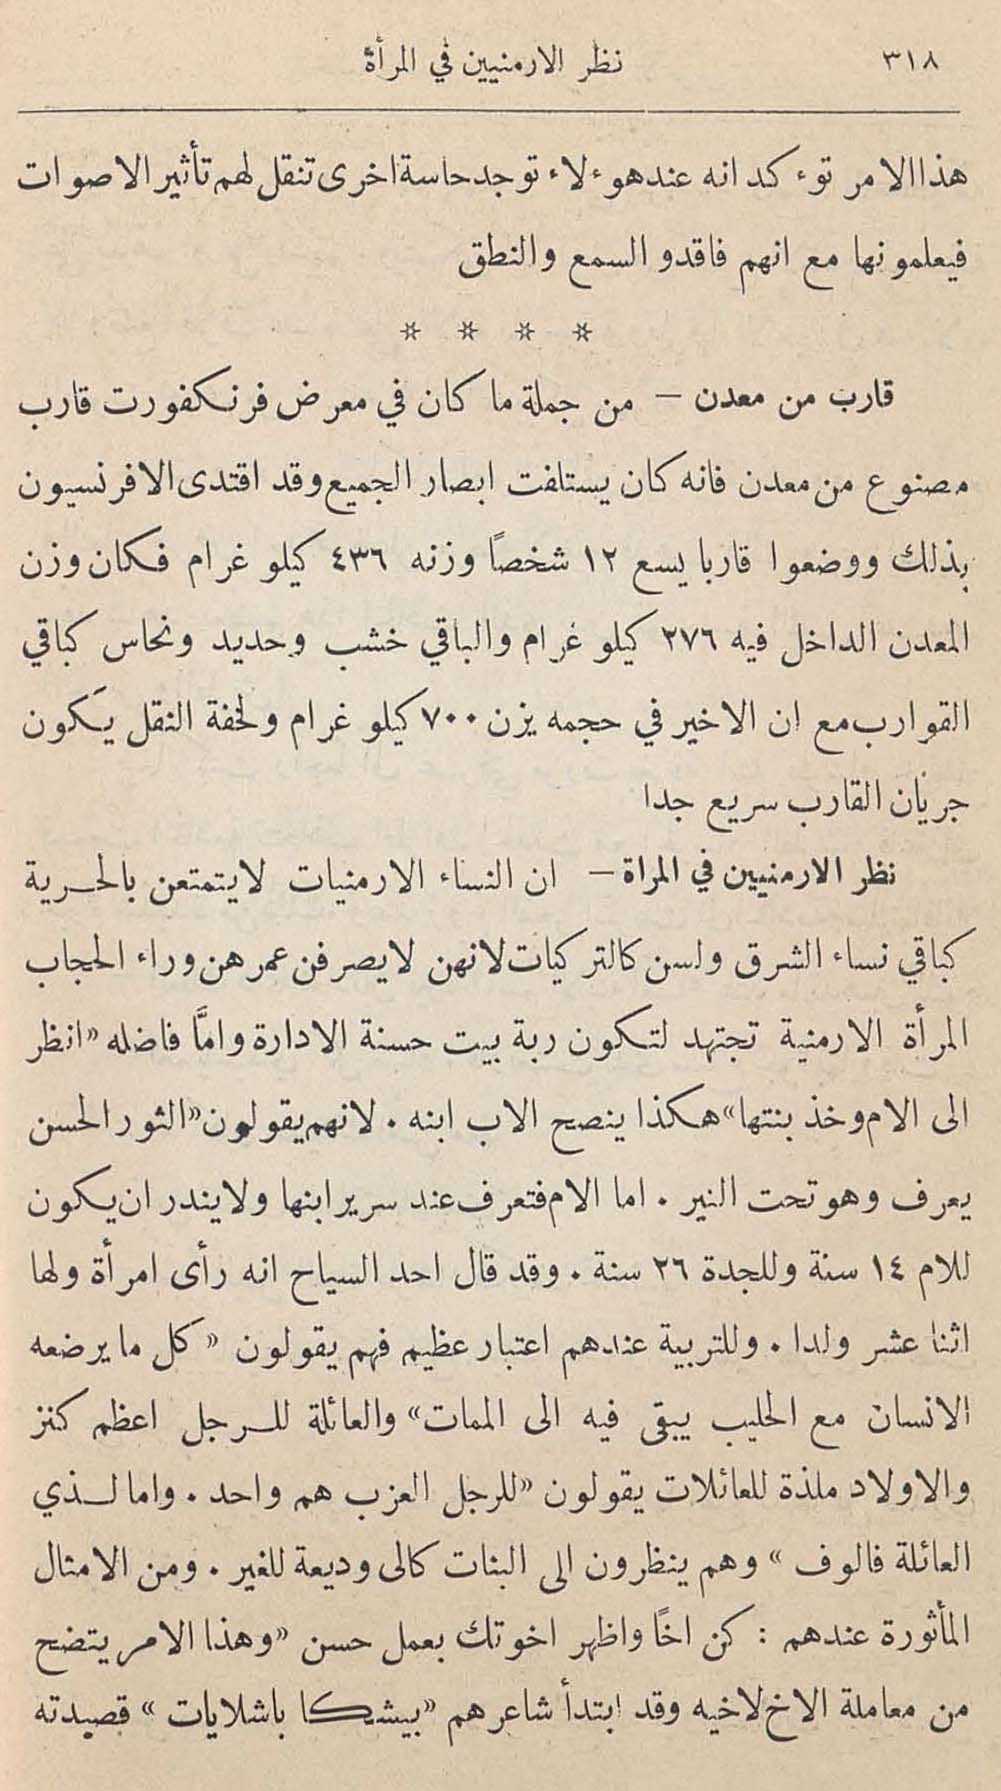 ٣١٨
نظر الارمنيين في المرأة
هذا الامر توء كد انه عند هوء لاء توجد حاسة اخرى تنقل لهم تأثير الاصوات
فيعلمونها مع انهم فاقدو السمع والنطق
* * * *
قارب من معدن — من جملة ما كان في معرض فرنكفورت قارب
مصنوع من معدن فانه كان يستلفت ابصار الجميع وقد اقتدى الافرنسيون
بذلك ووضعوا قاربا يسع ١٢ شخصاً وزنه ٤٣٦ كيلو غرام فكان وزن
المعدن الداخل فيه ٢٧٦ كيلو غرام والباقي خشب وحديد ونحاس كباقي
القوارب مع ان الاخير في حجمه يزن ٧٠٠ كيلو غرام ولخفة النقل يَكون
جريان القارب سريع جدا
نظر الارمنيين في المراة — ان النساء الارمنيات لا يتمتعن بالحرية
كباقي نساء الشرق ولسن كالتركيات لانهن لا يصرفن عمرهن وراء الحجاب
المرأة الارمنية تجتهد لتكون ربة بيت حسنة الادارة وامَّا فاضله «انظر
الى الام وخذ بنتها» هكذا ينصح الاب ابنه . لانهم يقولون «الثور الحسن
يعرف وهو تحت النير . اما الام فتعرف عند سرير ابنها ولا يندر ان يكون
للام ١٤ سنة وللجدة ٢٦ سنة . وقد قال احد السياح انه رأى امرأة ولها
اثنا عشر ولدا . وللتربية عندهم اعتبار عظيم فهم يقولون « كل ما يرضعه
الانسان مع الحليب يبقى فيه الى الممات» والعائلة للرجل اعظم كنز
والاولاد ملذة للعائلات يقولون «للرجل العزب هم واحد . واما لذي
العائلة فالوف » وهم ينظرون الى البنات كالى وديعة للغير . ومن الامثال
المأثورة عندهم : كن اخًا واظهر اخوتك بعمل حسن «وهذا الامر يتضح
من معاملة الاخ لاخيه وقد ابتدأ شاعرهم «بيشكا باشلايات » قصيدته